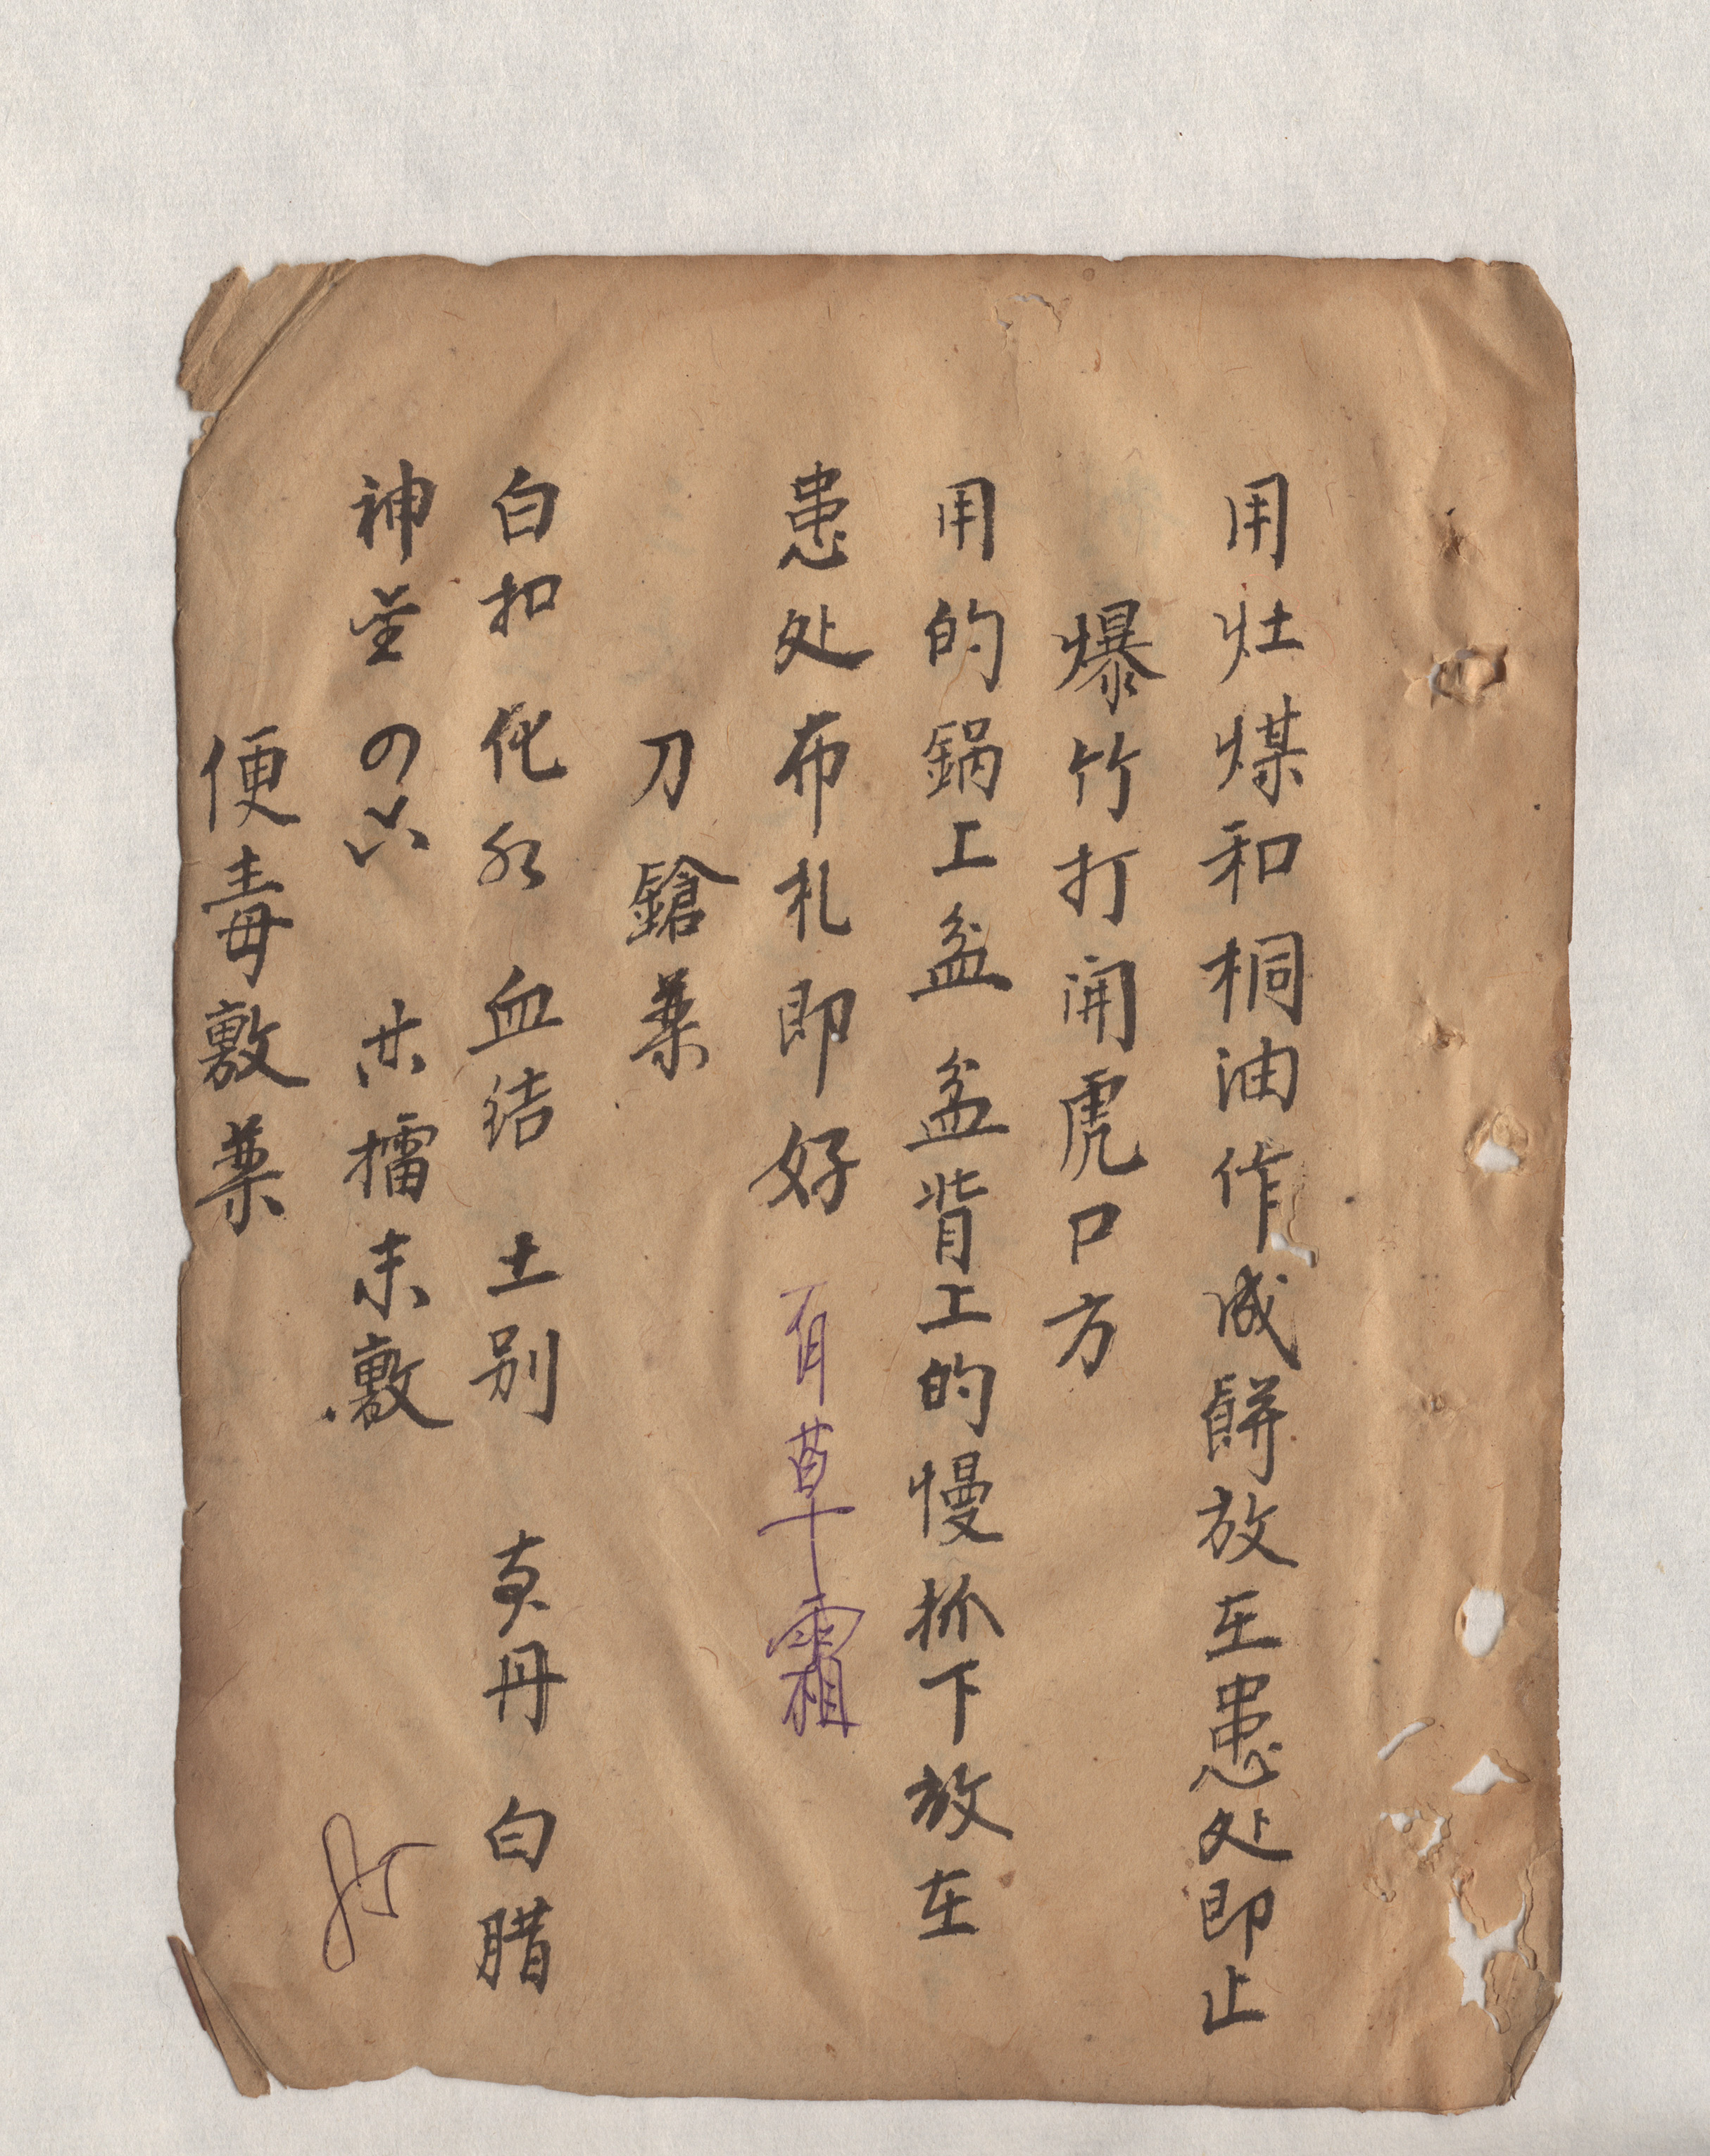 用灶煤和桐油作成餅放在患处即止
爆竹打開虎口方
用的鍋上盆盆背上的慢抓下放在
患处布札即好 百草霜
刀鎗藥
白扣 化水 血结 土别 黄丹 白腊
神 共擂末敷
便毒敷藥